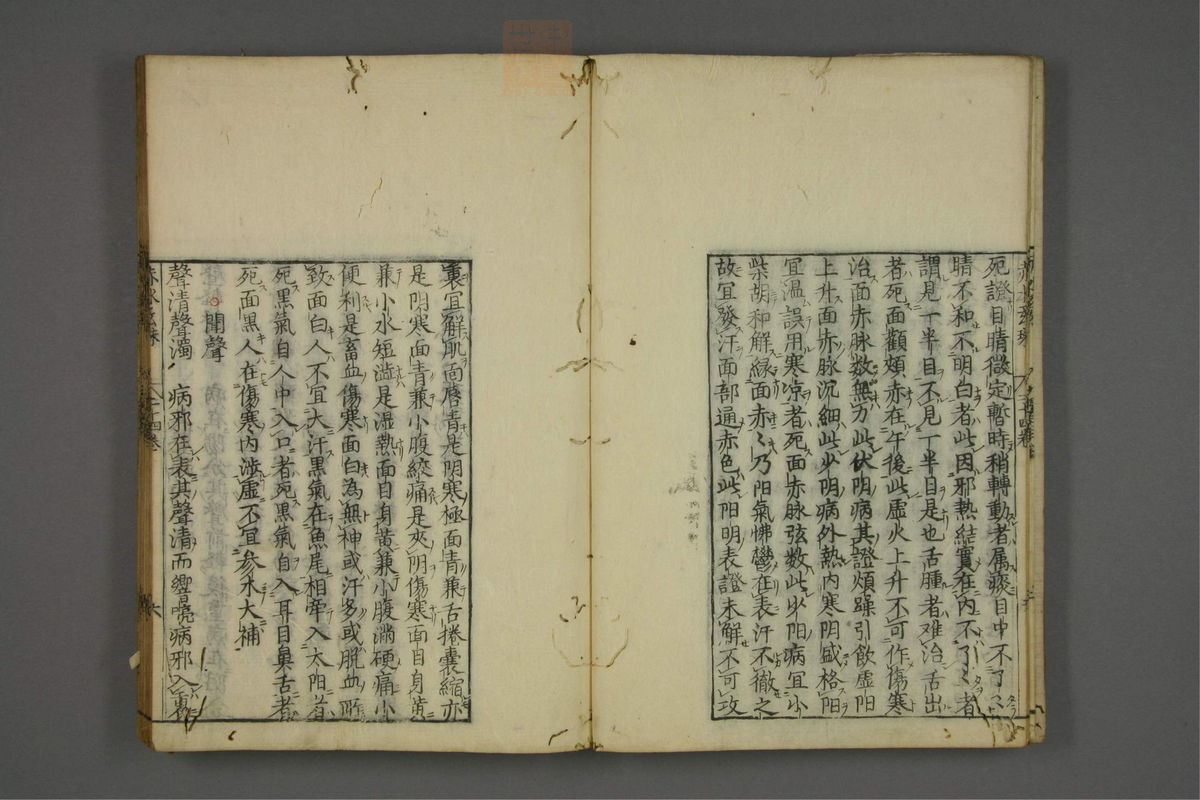 死證目睛微定暫時稍轉動者属痰目中不了々
睛不和不明白者此因邪熱結實在内不了々者
謂見一半目不見一半目是也舌腫者难治舌出
者死面顴頰赤在午後此虛火上升不可作傷寒
治面赤脉数無力此伏阴病其證煩躁引飲虛阳
上升面赤脉沉細此少阴病外熱内寒阴盛格阳
宜温誤用寒凉者死面赤脉弦数此少阳病宜小
柴胡和解緑面赤々乃阳氣怫鬱在表汗不徹之
故宜發汗面部通赤色此阳明表證未解不可攻
裏宜解肌面唇青是阴寒極面青兼舌捲囊縮亦
是阴寒面青兼小腹絞痛是夾阴傷寒面目身黄
兼小水短澁是湿熱面目身黄兼小腹满硬痛小
便利是畜血傷寒面白為無神或汗多或脱血所
致面白人不宜大汗黒氣在魚尾相牽入太阳者
死黒氣自人中入口者死黒氣自入耳目鼻舌者
死面黒人在傷寒内涉虛不宜参朮大補
聞聲
聲清聲濁 病邪在表其聲清而響亮病邪入裏